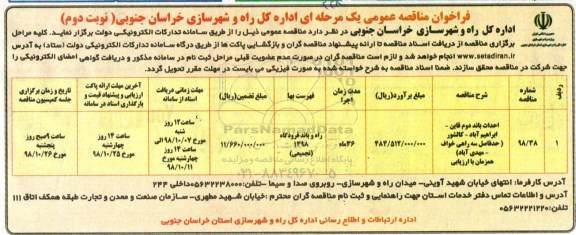 فراخوان مناقصه عمومی یک مرحله ای اداره کل راه و شهرسازی خراسان جنوبی( نوبت دوم)
اداره کل راه و شهرسازی خراسان جنوبی در نظر دارد مناقصه عمومی ذیل را از طریق سامانه تدارکات الکترونیکی دولت برگزار نماید. کلیه مراحل
برگزاری مناقصه از دریافت اسناد مناقصه تا ارائه پیشنهاد مناقصه گران و بازگشایی پاکت ها از طریق درگاه سامانه تدارکات الکترونیکی دولت (ستاد) به آدرس
www.setadiran.ir انجام خواهد شد و لازم است مناقصه گران در صورت عدم عضویت قبلی مراحل ثبت نام در سامانه مذکور و دریافت گواهی امضای الکترونیکی را
جهت شرکت در مناقصه محقق سازند. ضمنا اسناد مناقصه به شرح خواسته شده به صورت فیزیکی می بایست در مهلت مقرر تحویل گردد.
ردیف
شماره مناقصه
شرح مناقصه
مبلغ برآورد(ریال)
مدت زمان اجرا
فهرست بها
مبلغ تضمین(ریال)
مهلت زمانی دریافت اسناد از سامانه
آخرین مهلت ارائه پاکت ارزیابی و پیشنهاد قیمت و بارگذاری اسناد در سامانه
تاریخ و زمان برگزاری جلسه کمیسیون مناقصه
۱
۹۸/۳۸
احداث باند دوم قاین - ابراهیم آباد - گناباد (حدفاصل سه راهی خواف - مهدی آباد) همزمان با ارزیابی
۴۸۴/۵۱۲/۰۰۰/۰۰۰
۳۶ماه
راه و باند فرودگاه ۱۳۹۸ (تجمیعی)
۱۱/۶۶۰/۰۰۰/۰۰۰
ساعت ۱۲ روز شنبه مورخ ۹۸/۱۰/۰۷ الی ساعت ۱۴ روز چهارشنبه مورخ ۹۸/۱۰/۱۱
ساعت ۱۴ روز چهارشنبه مورخ ۹۸/۱۰/۲۵
ساعت ۹صبح روز پنجشنبه مورخ ۹۸/۱۰/۲۶
آدرس کارفرما: انتهای خیابان شهید آوینی- میدان راه و شهرسازی- روبروی صدا و سیما -تلفن:۰۵۶۳۲۲۳۸۰۰۰داخلی ۲۴۴
آدرس و اطلاعات تماس دفتر خدمات استان جهت راهنمایی و ثبت نام مناقصه گران محترم :خیابان شهید مطهری- سازمان صنعت و معدن و تجارت طبقه همکف اتاق ۱۱۱
تلفن:۰۵۶۳۲۲۲۱۲۲۰
اداره ارتباطات و اطلاع رسانی اداره کل راه و شهرسازی استان خراسان جنوبی